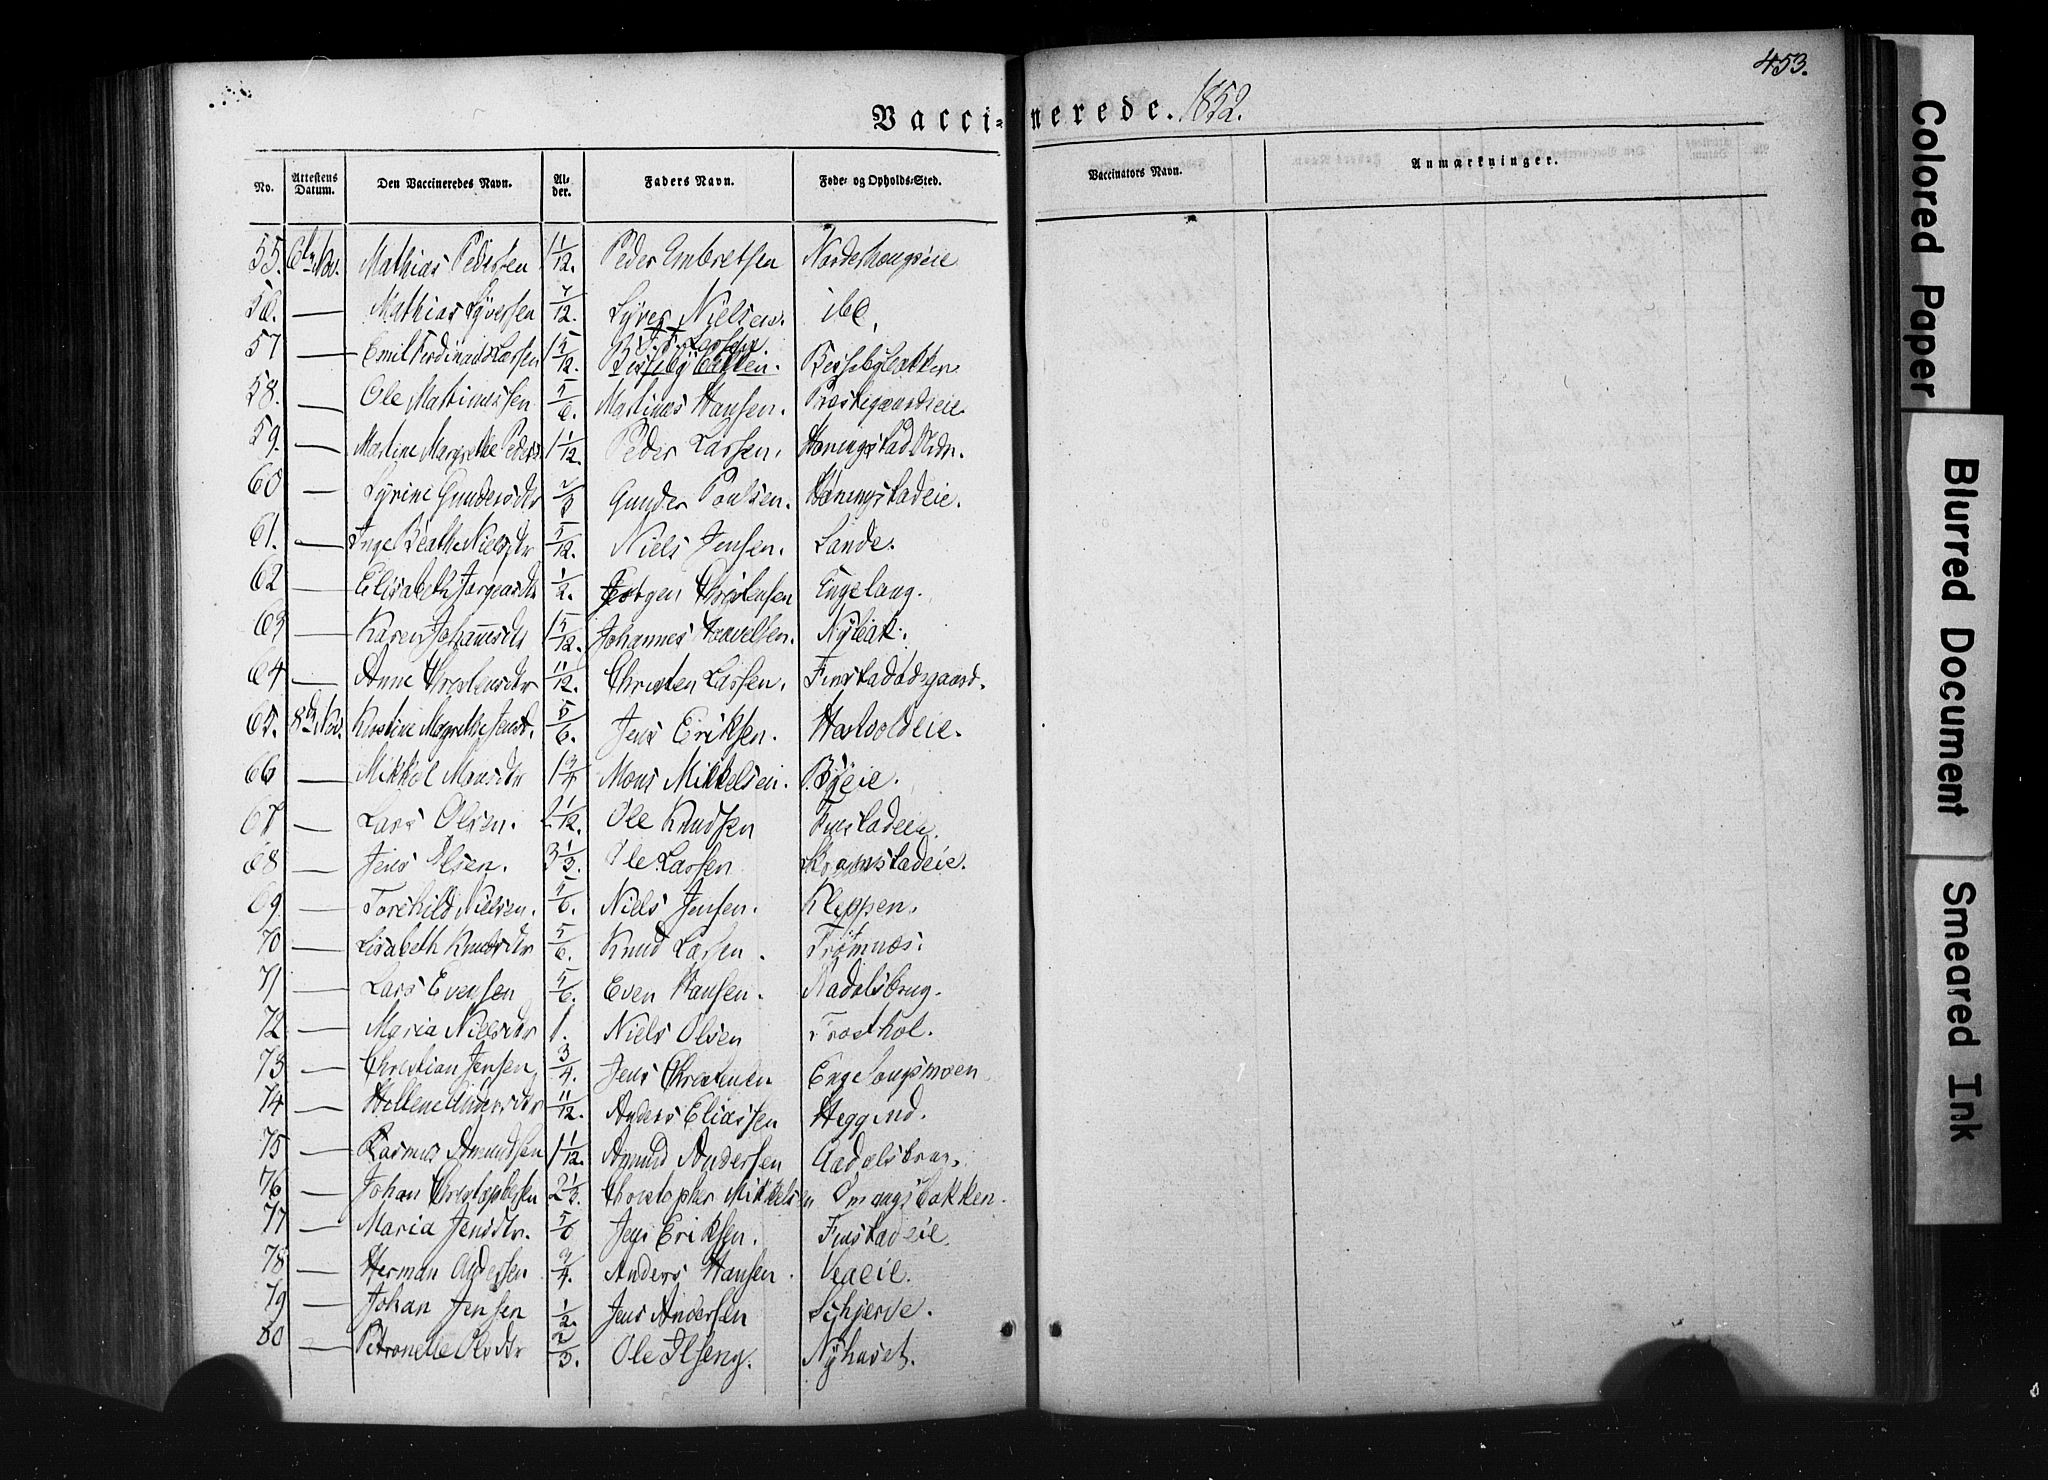 453.
Vaccinerede. 1852.
No. Attestens Datum. Den Vaccineredes Navn. Alder. Faders Navn. Føde- og Opholds-Sted. Vaccinators Navn. Anmærkninger.
55. 6te Nov. Mathias Pedersen 1 1/12. Peder Embretsen
56. — Mathias Syversen 7/12. Syver Nielsen. ibd.
57 — Emil Ferdinand Larsen 1 5/12. Larsen Berssebybakken. Berssebybakken
58. — Ole Martinussen 5/6. Martinus Hansen. Præstegaardseie
59. — Martine Margrethe Peders 1 1/12. Peder Larsen.
60 — Syrine Gundersdtr 2/3 Gunder Paulsen.
61. — Inge Beathe Nielsdtr 5/12. Niels Jensen. Sande.
62 — Elisabeth Jørgensdtr 1/2. Jørgen Christensen Engelaug.
63 — Karen Johannesdtr 1 5/12. Johannes
64 — Anne Christensdtr 11/12. Christen Larsen. Finstadødegaard.
65. 8de Nov. Kirstine Magrethe Jensd. 5/6. Jens Eriksen.
66 — Mikkel Monsdtr 1 3/4 Mons Mikkelsen. Byeie.
67 — Lars Olsen. 2 1/12. Ole Knudsen Finstadeie.
68 — Jens Olsen. 3 1/3. Ole Larsen
69. — Torchild Nielsen. 5/6. Niels Jensen. Kleppen.
70 — Lisabeth Knudsdtr 5/6. Knud Larsen. Trømnæs.
71 — Lars Evensen 5/6. Even Hansen. Aadalsbrug.
72 — Maria Nielsdtr 1. Niels Olsen
73 — Christian Jensen 3/4. Jens Christensen Engelaugsmoen
74 — Hellene Andersdtr 11/12. Anders Eliassen Heggrud.
75 — Rasmus Amundsen 1 1/12. Amund Andersen Aadalsbrug.
76 — Johan Christophersen 2 1/3. Christopher Mikkelsen Omangsbakken.
77 — Maria Jensdtr. 5/6 Jens Eriksen. Finstadeie.
78 — Herman Andersen 3/4. Anders Hansen. Veaeie.
79 — Johan Jensen 1/2. Jens Andersen Schjerve.
80 — Petronelle Olsdtr 2/3. Ole Ilseng. Nyhuset.
Colored Paper
Blurred Document
Smeared Ink